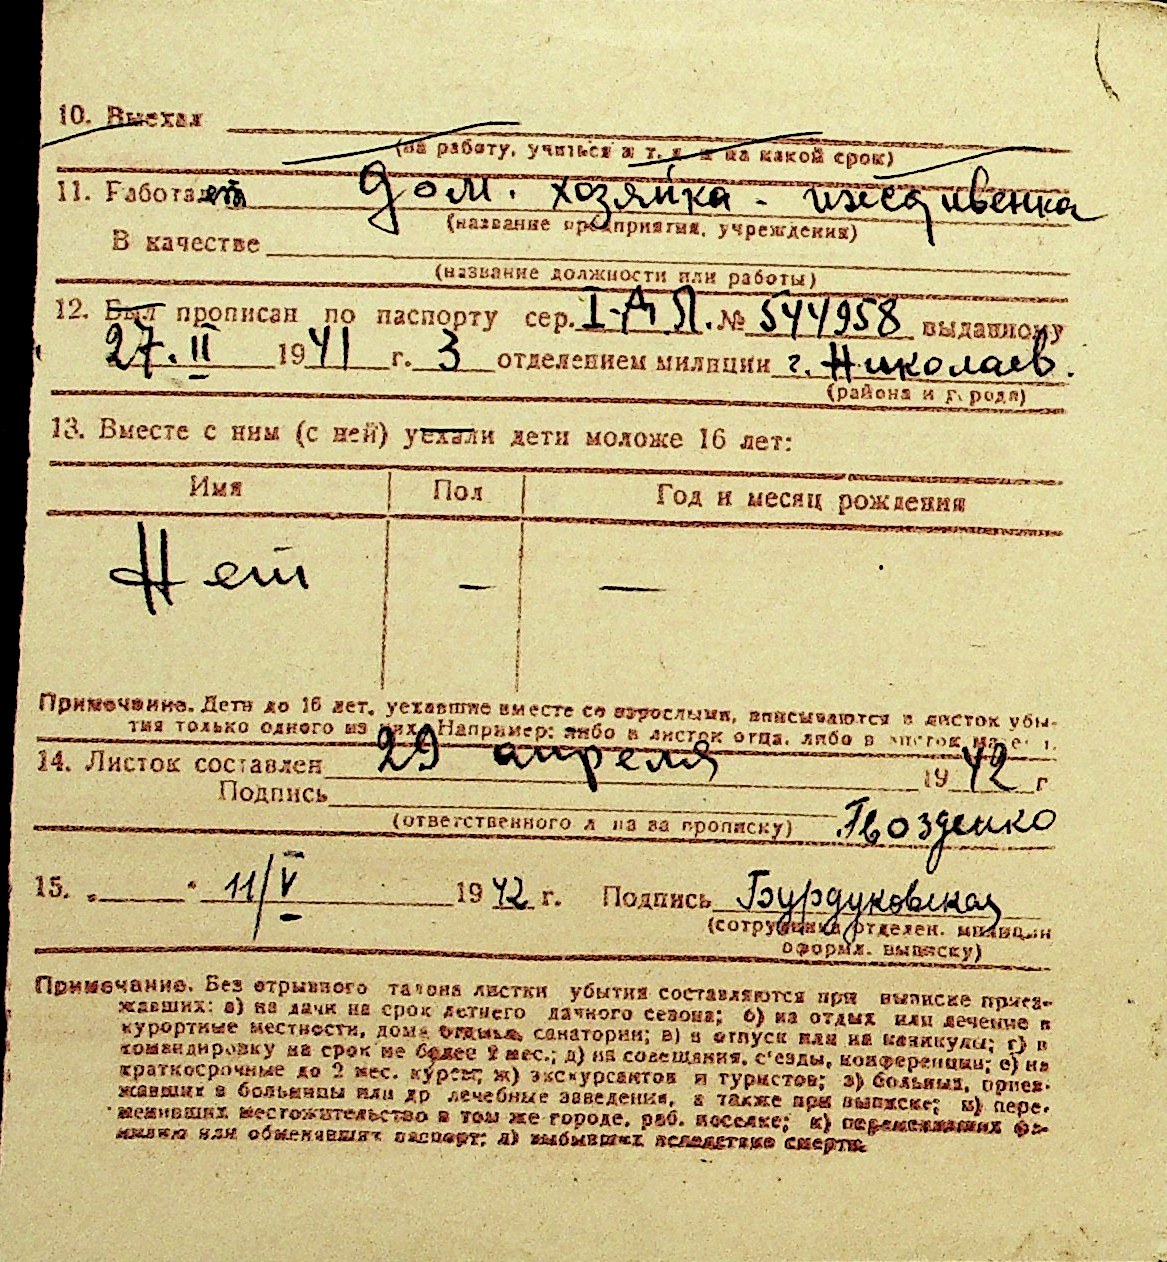 10. Выехал
(на работу, учиться и т. д. и на какой срок)
11. Работает дом. хозяйка - иждивенка
(название предприятия, учреждения)
В качестве
(название должности или работы)
12. Был прописан по паспорту сер. I-ДЛ. № 544958 выданному
27. II 1941 г. 3 отделением милиции г. Николаев.
(района и города)
13. Вместе с ним (с ней) уехали дети моложе 16 лет:
Имя Пол Год и месяц рождения
Нет — —
Примечание. Дети до 16 лет, уехавшие вместе со взрослыми, вписываются в листок убы-
тия только одного из них. Например: либо в листок отца, либо в листок матери.
14. Листок составлен 29 апреля 1942 г
Подпись
(ответственного лица за прописку) Гвозденко
15. „ “ 11/V 1942 г. Подпись Бурдуковская
(сотрудника отделен. милиции
оформл. выписку)
Примечание. Без отрывного талона листки убытия составляются при выписке приез-
жавших: а) на дачи на срок летнего дачного сезона; б) на отдых или лечение в
курортные местности, дома отдыха, санатории; в) в отпуск или на каникулы; г) в
командировку на срок не более 2 мес.; д) на совещания, с'езды, конференции; е) на
краткосрочные до 2 мес. курсы; ж) экскурсантов и туристов; з) больных, приез-
жавших в больницы или др лечебные заведения, а также при выписке; и) пере-
менивших местожительство в том же городе, раб. поселке; к) переменивших фа-
милию или обменявших паспорт; л) выбывших вследствие смерти.